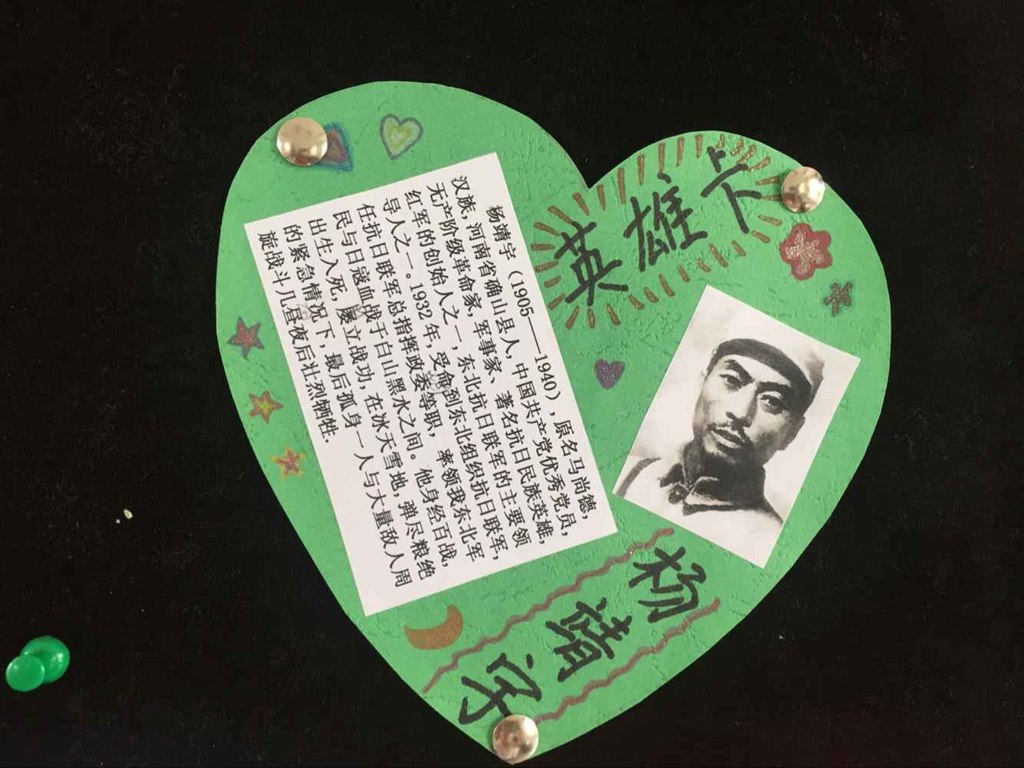 英雄卡
杨靖宇（1905——1940），原名马尚德，
汉族，河南省确山县人，中国共产党优秀党员，
无产阶级革命家，军事家、著名抗日民族英雄，
红军的创始人之一，东北抗日联军的主要领
导人之一。1932年，受命到东北组织抗日联军，
任抗日联军总指挥政委等职，率领我东北军
民与日寇血战于白山黑水之间。他身经百战，
出生入死，屡立战功，在冰天雪地，弹尽粮绝
的紧急情况下，最后孤身一人与大量敌人周
旋战斗几昼夜后壮烈牺牲.
杨靖宇